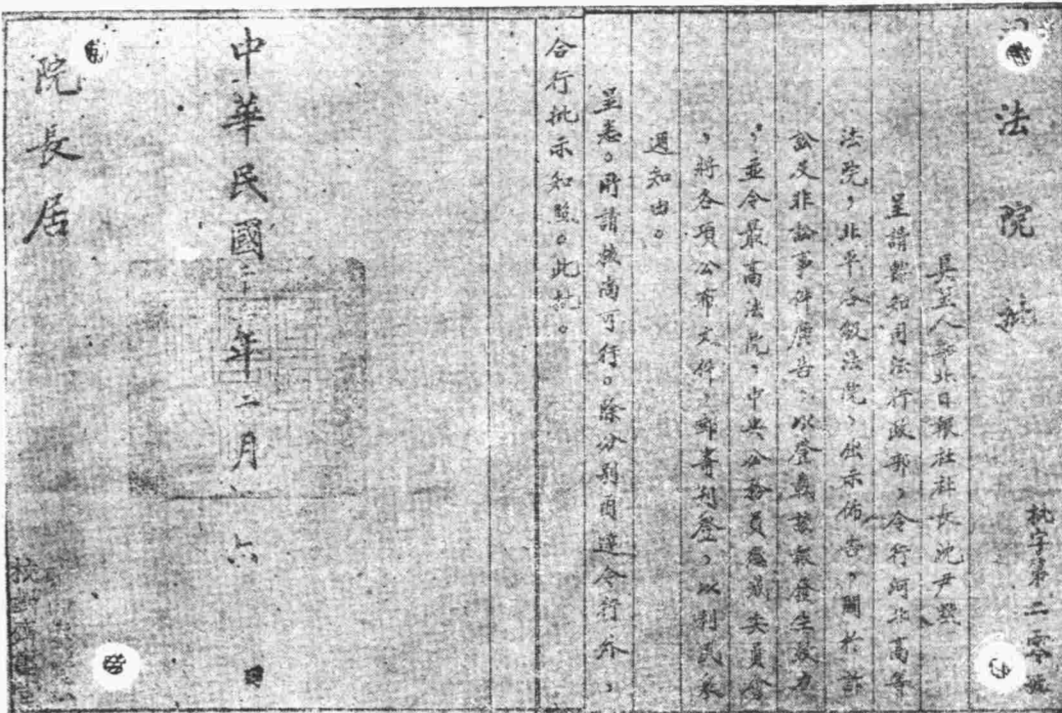 法院批
批字第二零號
具呈人華北日報社社長沈尹默
呈請轉知司法行政部,令行河北高等
法院,北平各級法院,出示佈告,關於訴
訟及非訟事件廣告,以登載該報發生效力
,並令最高法院,中央公務員懲戒委員會
,將各項公布文件,郵寄刊登,以利民眾
週知由。
呈悉。所請核尚可行。除分別函達令行外,
合行批示知照。此批。
中華民國二十一年二月六日
院長居